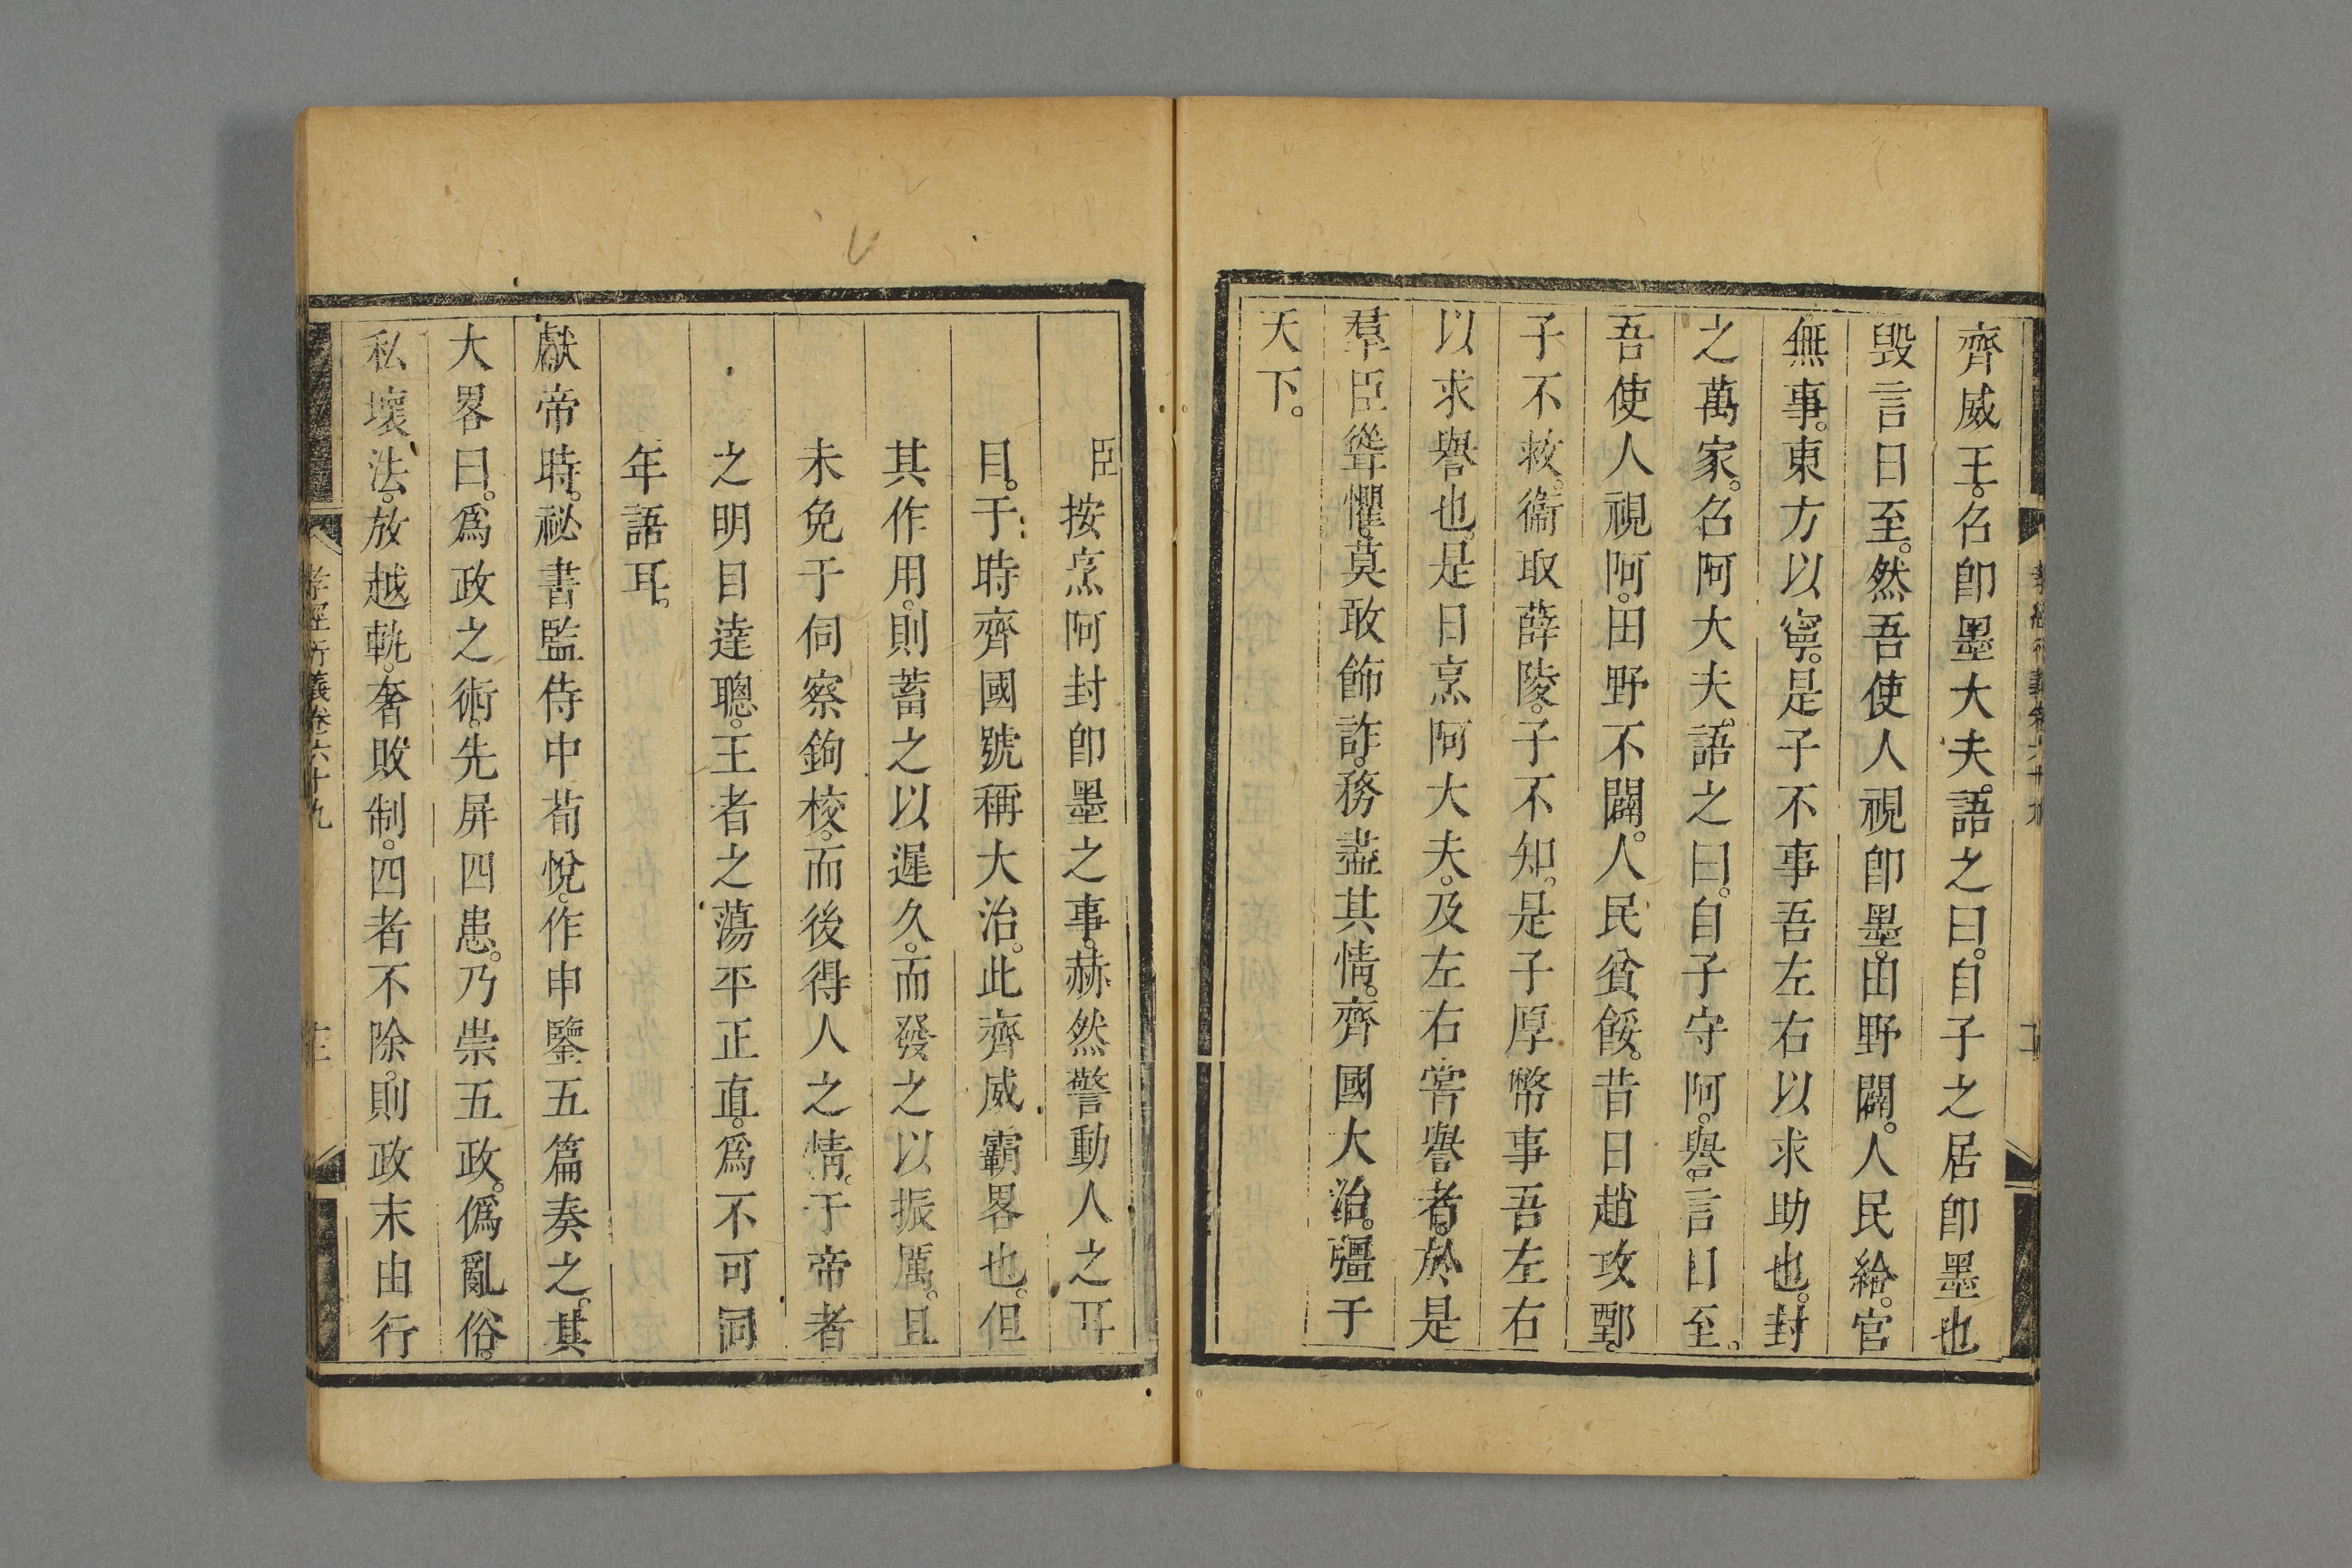 齊威王。召卽墨大夫。語之曰。自子之居卽墨也
毁言日至。然吾使人視卽墨。田野闢。人民給。官
無事。東方以寧。是子不事吾左右以求助也。封
之萬家。召阿大夫。語之曰。自子守阿。譽言日至。
吾使人視阿。田野不闢。人民貧餒。昔日趙攻鄄。
子不救。衞取薛陵。子不知。是子厚幣事吾左右
以求譽也。是日烹阿大夫。及左右嘗譽者。於是
羣臣聳懼。莫敢飾詐。務盡其情。齊國大治。彊于
天下。
臣按烹阿封卽墨之事。赫然警動人之耳
目。于時齊國號稱大治。此齊威霸畧也。但
其作用。則蓄之以遲久。而發之以振厲。且
未免于伺察鉤校。而後得人之情。于帝者
之明目達聰。王者之蕩平正直。爲不可同
年語耳。
獻帝時。祕書監侍中荀悅。作申鑒五篇奏之。其
大畧曰。爲政之術。先屏四患。乃崇五政。僞亂俗。
私壞法。放越軌。奢敗制。四者不除。則政末由行
孝經衍義卷六十九